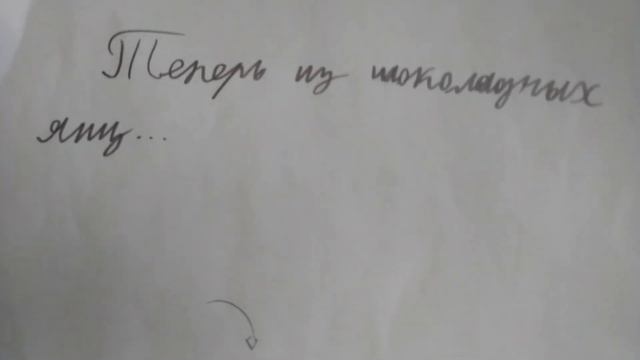 Теперь из шоколадных
яиц...